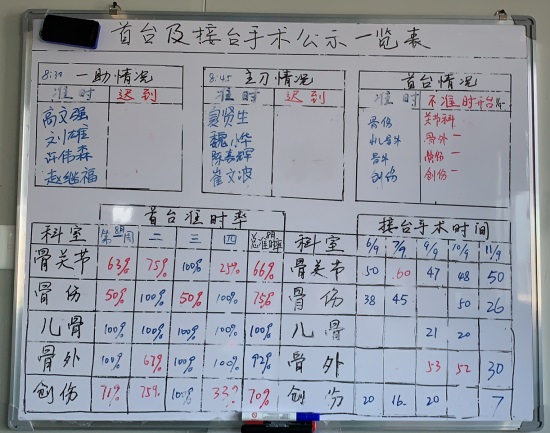 首台及接台手术公示一览表
8:30 一助情况
准时 迟到
高文强
刘雄
陈伟森
赵继福
8:45 主刀情况
准时 迟到
夏贤生
魏小华
陈春辉
崔文波
首台情况
准时 不准时开台
骨伤 关节科
儿骨 骨外一
骨外 骨伤一
创伤 创伤一
首台准时率
科室 第一周 二 三 四 总准时率
骨关节 63% 75% 100% 25% 66%
骨伤 50% 100% 50% 100% 75%
儿骨 100% 100% 100% 100% 100%
骨外 100% 67% 100% 100% 92%
创伤 71% 75% 100% 33% 70%
接台手术时间
科室 6/9 7/9 9/9 10/9 11/9
骨关节 50 60 47 48 50
骨伤 38 45 50 26
儿骨 21 20
骨外 53 52 30
创伤 20 16 20 7